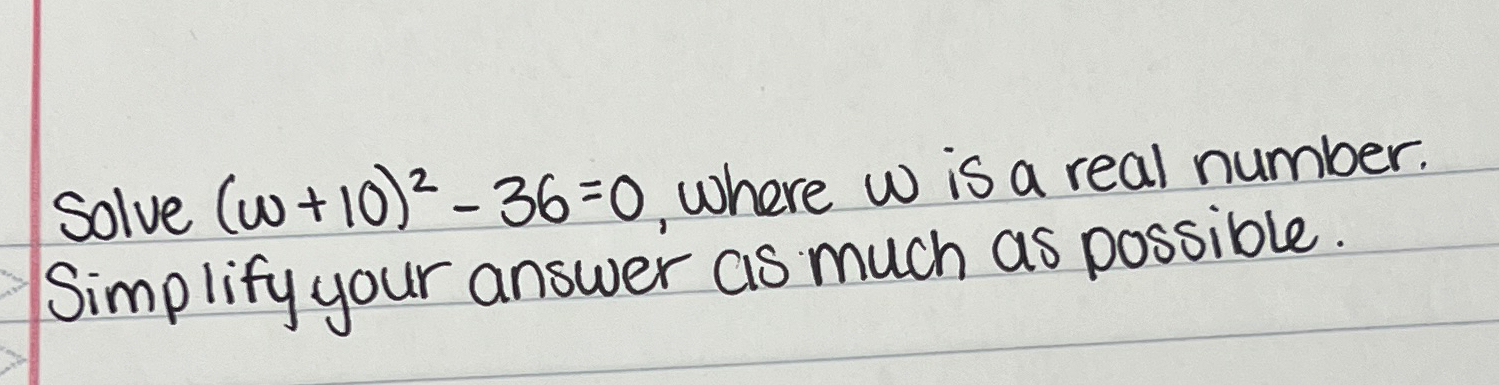 Solve (w+10)² - 36=0, where w is a real number.
Simplify your answer as much as possible.